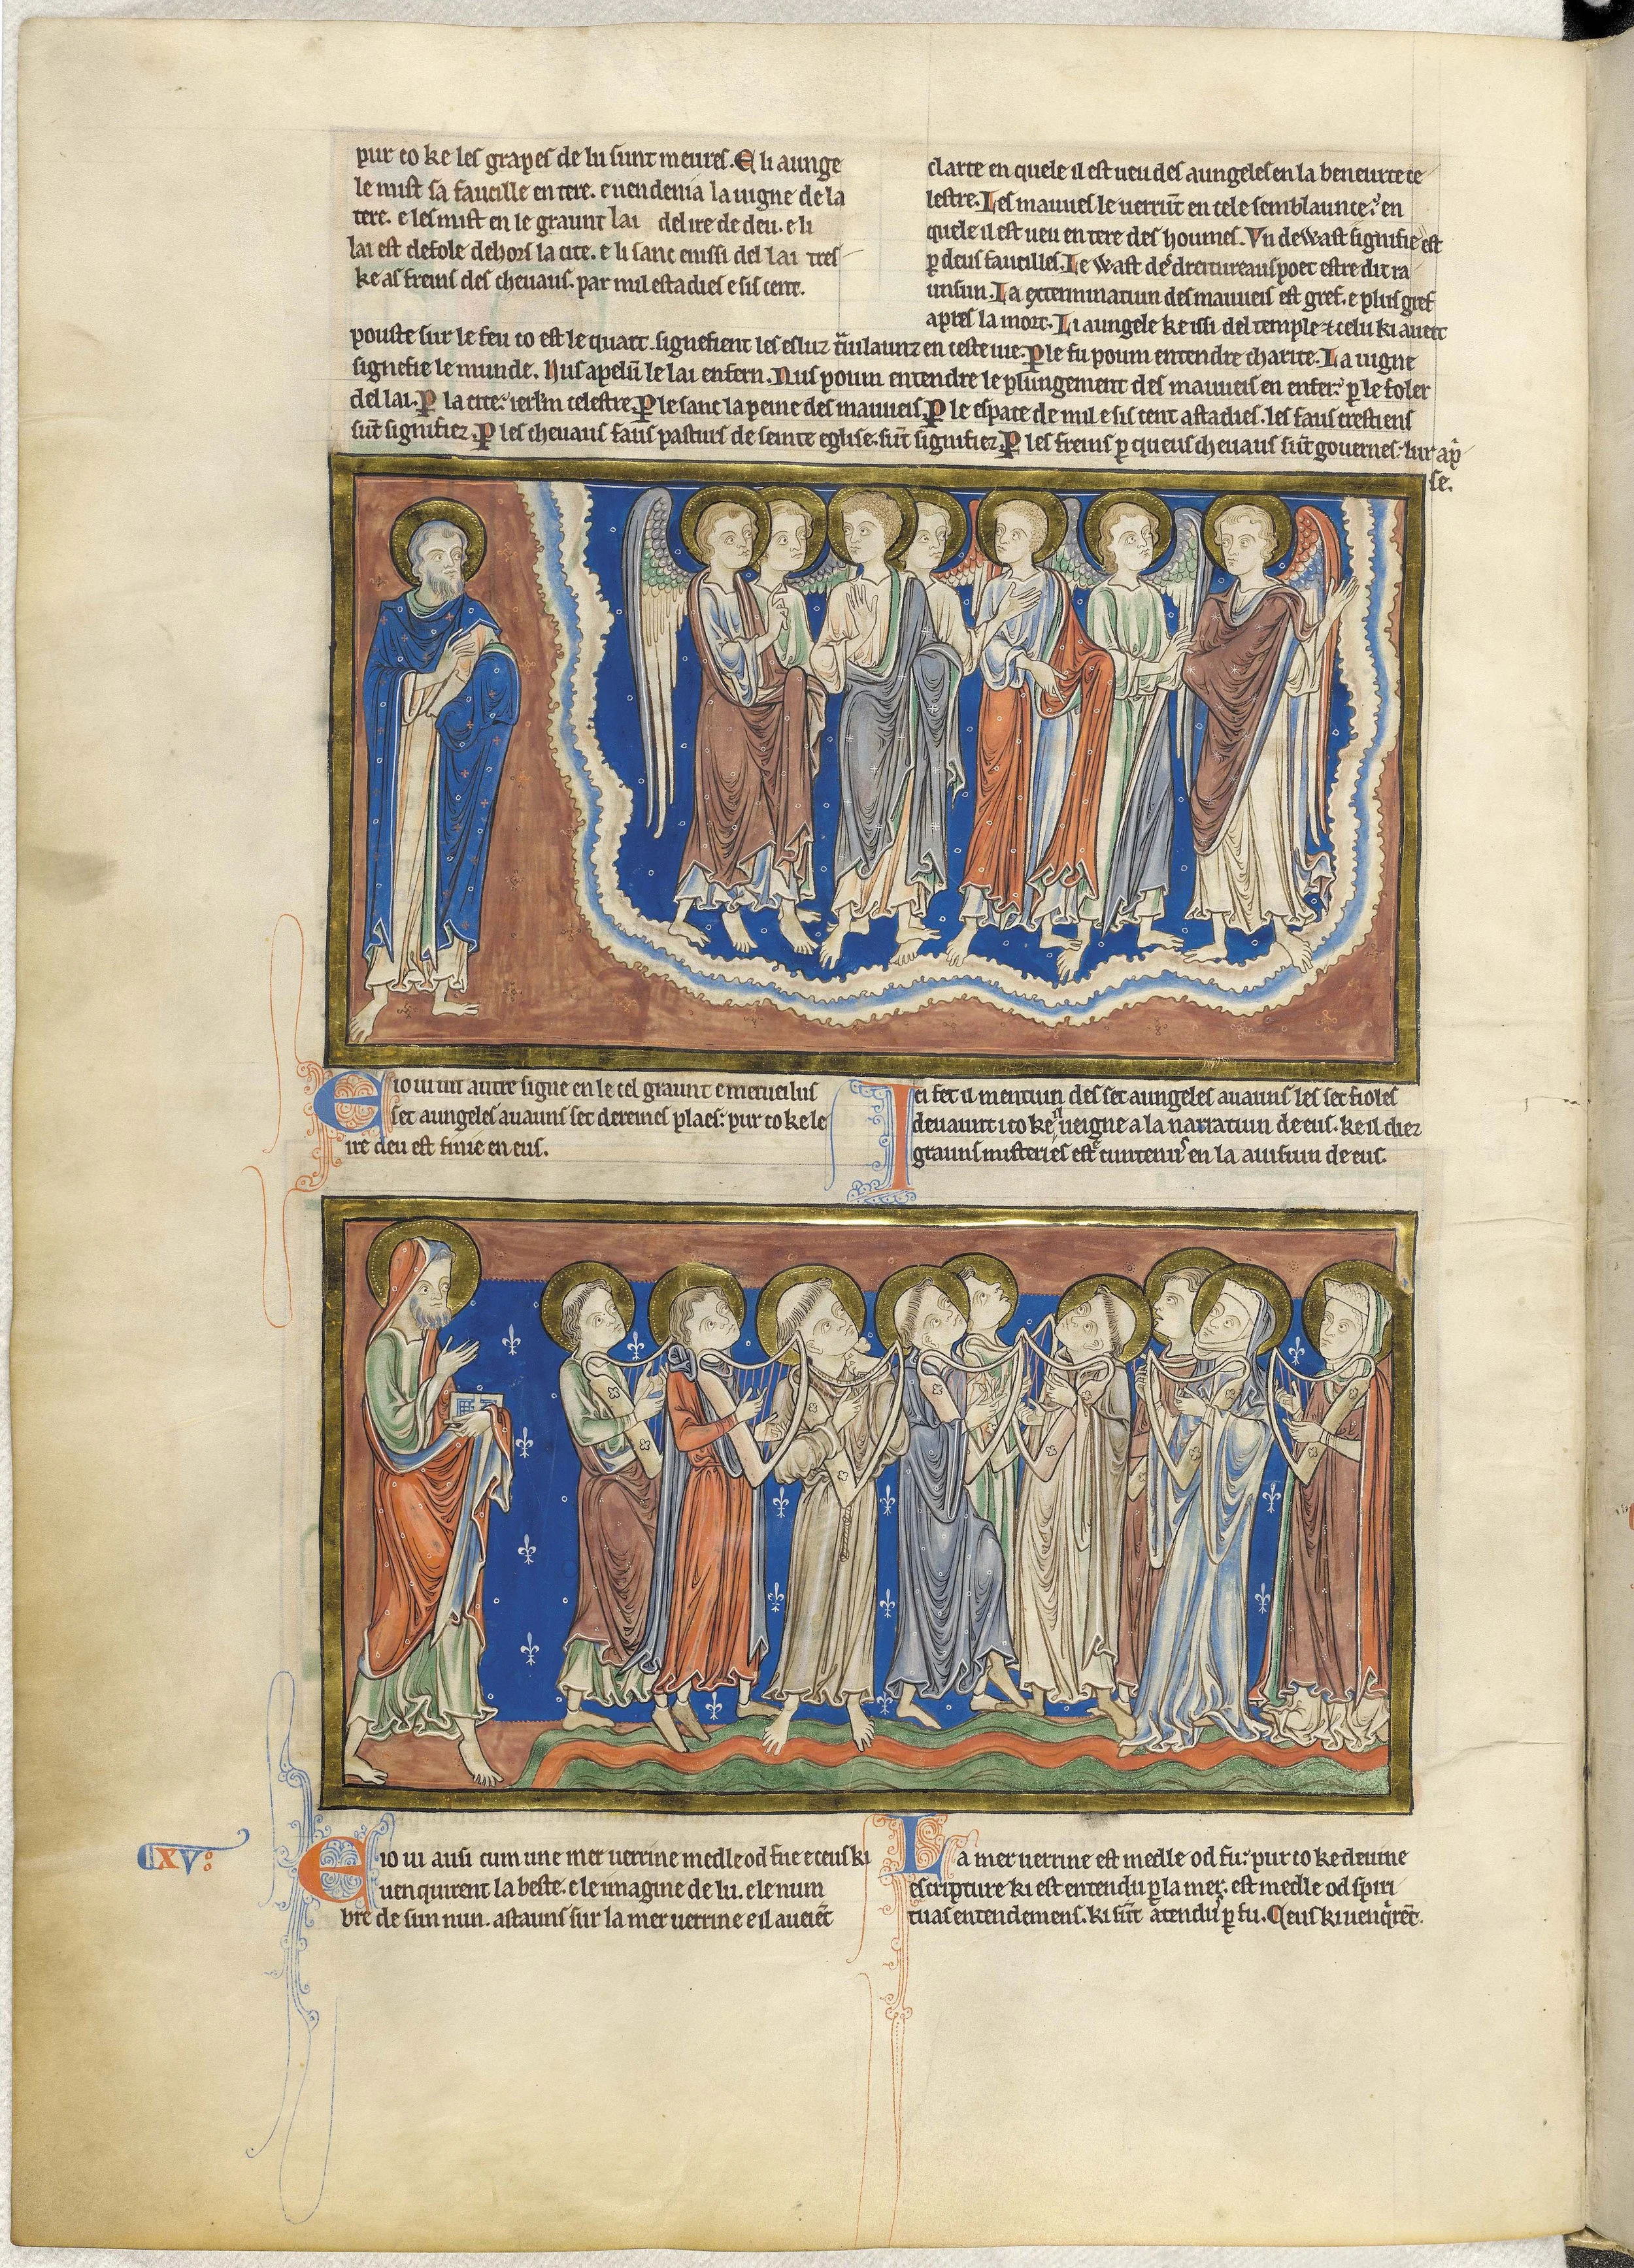 pur co ke les grapes de lu sunt meures. E li aunge
le mist sa faucille en tere. e uendenia la uigne de la
tere. e les mist en le graunt lai del ire de deu. e li
lai est defole dehors la cite. e li sanc enissi del lai tres
ke as freins des cheuaus. par mil estadies e sis cent.
clarte en quele il est ueu des aungeles en la beneurte ce
lestre. Les mauueis le uerrūt en cele semblaunce; en
quele il est ueu en tere des houmes. Vn dewast signifie est
ꝑ deus faucilles. Le wast de dreitureaus poet estre dit ra
unsun. La exterminatiun des mauueis est gref. e plus gref
apres la mort. Li aungele ke issi del temple ⁊ celu ki aueit
pouste sur le feu co est le quart. signefient les esluz t̾uilaunz en ceste uie. Ꝑ le fu poum entendre charite. La uigne
signefie le munde. Nus apelū le lai enfern. Nus poum entendre le plungement des mauueis en enfer; ꝑ le foler
del lai. Ꝑ la cite; ierl'm celestre. Ꝑ le sanc la peine des mauueis. Ꝑ le espace de mil e sis cent astadies. les faus crestiens
sūt signifiez. Ꝑ les cheuaus faus pasturs de seinte eglise. sūt signifiez. Ꝑ les freins ꝑ queus cheuaus sūt gouernes. lur ap̾
se.
E io ui un autre signe en le cel graunt e merueilus
set aungeles auauns set dereines plaes; pur co ke le
ire deu est finie en eus.
Ici fet il mentiun des set aungeles auauns les set fioles
deuaunt ico ke il ueigne a la narratiun de eus. ke il diez
grauns misteries estre cuntenus en la auisiun de eus.
E io ui ausi cum une mer uerrine medle od fue e ceus ki
uenquirent la beste. e le imagine de lu. e le num
bre de sun nun. astauns sur la mer uerrine e il aueiēt
La mer uerrine est medle od fu; pur co ke deuine
escripture ki est entendu ꝑ la mer. est medle od spiri
tuas entendemens. ki sūt atendus ꝑ fu. Ceus ki uenq̾rēt.
XV: